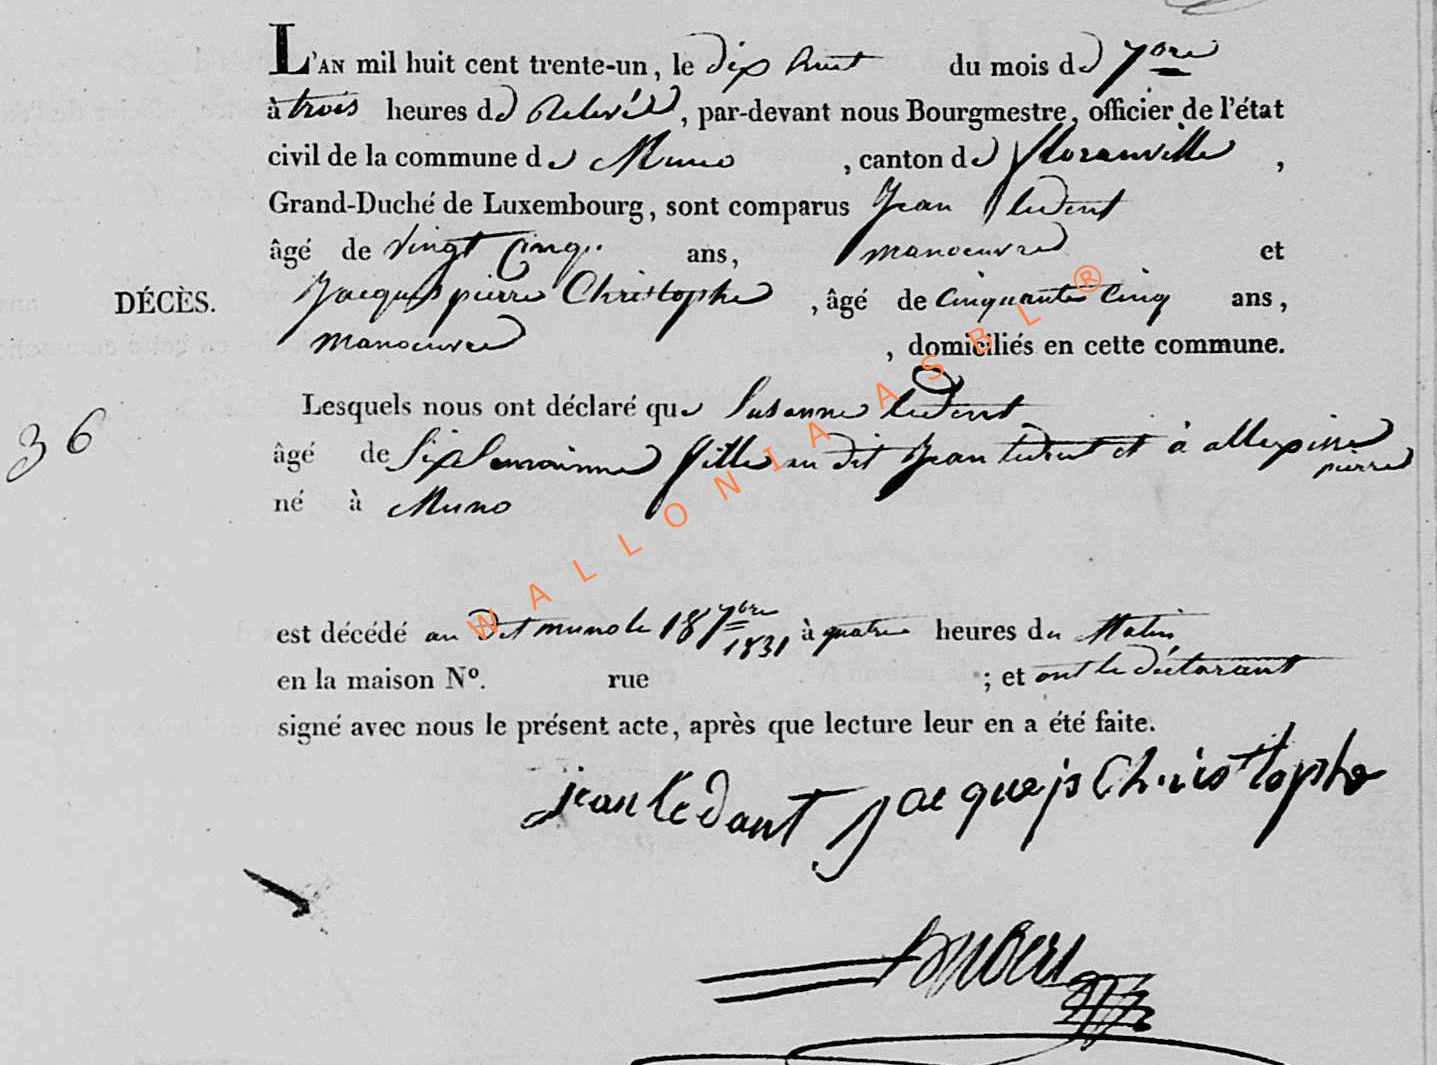 L'AN mil huit cent trente-un, le dix huit du mois de 7bre
à trois heures de Relevée, par-devant nous Bourgmestre, officier de l'état
civil de la commune de Muno, canton de floranville,
Grand-Duché de Luxembourg, sont comparus Jean ledent
âgé de vingt Cinq ans, manoeuvre et
DÉCÈS. Jacques pierre Christophe, âgé de Cinquante Cinq ans,
manoeuvre, domiciliés en cette commune.
Lesquels nous ont déclaré que Susanne ledent
36
âgé de Six Semainne fille au dit Jean ledent et à
pierre
né à Muno
est décédé au dit muno le 18 7bre 1831 à quatre heures du Matin
en la maison N°. rue ; et ont le déclarant
signé avec nous le présent acte, après que lecture leur en a été faite.
jean ledant jacque jp Christophe
WALLONIA ASBL ®